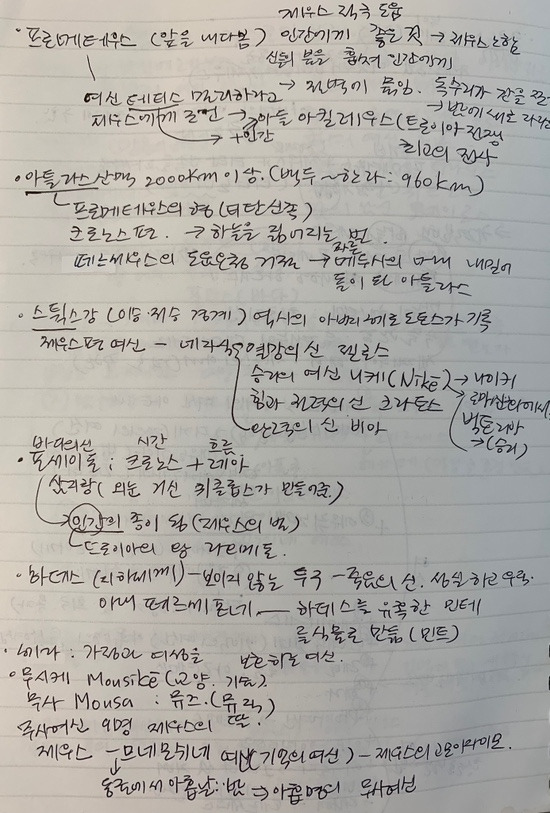 제우스 적극 도움
· 프로메테우스 (앞을 내다봄) 인간에게 좋은 것 → 제우스 노함
신들의 불을 훔쳐 인간에게
→ 절벽에 묶임. 독수리가 간을
여신 테티스 멀리하라고
제우스에게 조언 → 아들 아킬레우스 (트로이아 전쟁
+인간
최고의 전사
· 아틀라스산맥 2000km 이상. (백두~한라: 960km)
프로메테우스의 형 (티탄신족)
크로노스편. → 하늘을 짊어지는 벌.
페르세우스의 도움요청 거절 → 메두사의 머리 내밀어
자른
돌이 된 아틀라스
· 스틱스강 (이승·저승 경계) 역사의 아버지 헤로도토스가 기록
제우스편 여신 – 네 자식 열망의 신 젤로스
승리의 여신 니케 (Nikē) → 나이키
힘과 권력의 신 크라토스
로마신화에서
빅토리아
→ (승리)
신 비아
바다의신 시간 흐름
· 포세이돈 : 크로노스 + 레아
삼지창 (외눈 거신 퀴클롭스가 만들어준)
→ 인간의 종이 됨 (제우스의 벌)
트로이아의 왕 라오메돈.
· 하데스 (지하세계) – 보이지 않는 투구 – 죽음의 신. 성실하고 우직.
아내 페르세포네 — 하데스를 유혹한 민테
를 식물로 만듦 (민트)
· 헤라 : 가정과 여성을 보호하는 여신.
○ 무시케 Mousikē (교양. 기술)
무사 Mousa : 뮤즈. (뮤직)
무사여신 9명 제우스의 딸.
제우스 – 므네모쉬네 여신 (기억의 여신) – 제우스의 고모이자 이모.
동굴에서 아홉날. 밤 → 아홉명의 무사여신